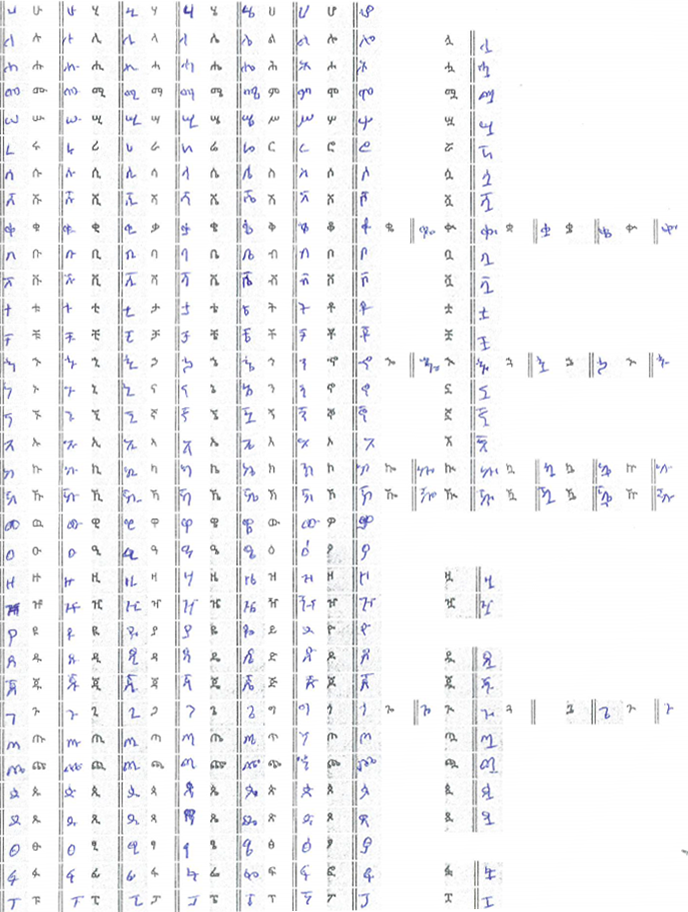 ሀ ሁ ሁ ሂ ሂ ሃ ሃ ሄ ሄ ህ ህ ሆ ሆ
ለ ሉ ሉ ሊ ሊ ላ ላ ሌ ሌ ል ል ሎ ሎ ሏ ሏ
ሐ ሑ ሑ ሒ ሒ ሓ ሓ ሔ ሔ ሕ ሕ ሖ ሖ ሗ ሗ
መ ሙ ሙ ሚ ሚ ማ ማ ሜ ሜ ም ም ሞ ሞ ሟ ሟ
ሠ ሡ ሡ ሢ ሢ ሣ ሣ ሤ ሤ ሥ ሥ ሦ ሦ ሧ ሧ
ረ ሩ ሩ ሪ ሪ ራ ራ ሬ ሬ ር ር ሮ ሮ ሯ ሯ
ሰ ሱ ሱ ሲ ሲ ሳ ሳ ሴ ሴ ስ ስ ሶ ሶ ሷ ሷ
ሸ ሹ ሹ ሺ ሺ ሻ ሻ ሼ ሼ ሽ ሽ ሾ ሾ ሿ ሿ
ቀ ቁ ቁ ቂ ቂ ቃ ቃ ቄ ቄ ቅ ቅ ቆ ቆ ቈ ቈ ቊ ቊ ቋ ቋ ቌ ቌ ቍ ቍ
በ ቡ ቡ ቢ ቢ ባ ባ ቤ ቤ ብ ብ ቦ ቦ ቧ ቧ
ቨ ቩ ቩ ቪ ቪ ቫ ቫ ቬ ቬ ቭ ቭ ቮ ቮ ቯ ቯ
ተ ቱ ቱ ቲ ቲ ታ ታ ቴ ቴ ት ት ቶ ቶ ቷ ቷ
ቸ ቹ ቹ ቺ ቺ ቻ ቻ ቼ ቼ ች ች ቾ ቾ ቿ ቿ
ኀ ኁ ኁ ኂ ኂ ኃ ኃ ኄ ኄ ኅ ኅ ኆ ኆ ኈ ኈ ኊ ኊ ኋ ኋ ኌ ኌ ኍ ኍ
ነ ኑ ኑ ኒ ኒ ና ና ኔ ኔ ን ን ኖ ኖ ኗ ኗ
ኘ ኙ ኙ ኚ ኚ ኛ ኛ ኜ ኜ ኝ ኝ ኞ ኞ ኟ ኟ
አ ኡ ኡ ኢ ኢ ኣ ኣ ኤ ኤ እ እ ኦ ኦ ኧ ኧ
ከ ኩ ኩ ኪ ኪ ካ ካ ኬ ኬ ክ ክ ኮ ኮ ኰ ኰ ኲ ኲ ኳ ኳ ኴ ኴ ኵ ኵ
ኸ ኹ ኹ ኺ ኺ ኻ ኻ ኼ ኼ ኽ ኽ ኾ ኾ ዀ ዀ ዂ ዂ ዃ ዃ ዄ ዄ ዅ ዅ
ወ ዉ ዉ ዊ ዊ ዋ ዋ ዌ ዌ ው ው ዎ ዎ
ዐ ዑ ዑ ዒ ዒ ዓ ዓ ዔ ዔ ዕ ዕ ዖ ዖ
ዘ ዙ ዙ ዚ ዚ ዛ ዛ ዜ ዜ ዝ ዝ ዞ ዞ ዟ ዟ
ዠ ዡ ዡ ዢ ዢ ዣ ዣ ዤ ዤ ዥ ዥ ዦ ዦ ዧ ዧ
የ ዩ ዩ ዪ ዪ ያ ያ ዬ ዬ ይ ይ ዮ ዮ
ደ ዱ ዱ ዲ ዲ ዳ ዳ ዴ ዴ ድ ድ ዶ ዶ ዷ ዷ
ጀ ጁ ጁ ጂ ጂ ጃ ጃ ጄ ጄ ጅ ጅ ጆ ጆ ጇ ጇ
ገ ጉ ጉ ጊ ጊ ጋ ጋ ጌ ጌ ግ ግ ጎ ጎ ጐ ጐ ጒ ጒ ጓ ጔ ጔ ጕ ጕ
ጠ ጡ ጡ ጢ ጢ ጣ ጣ ጤ ጤ ጥ ጥ ጦ ጦ ጧ ጧ
ጨ ጩ ጩ ጪ ጪ ጫ ጫ ጬ ጬ ጭ ጭ ጮ ጮ ጯ ጯ
ጰ ጱ ጱ ጲ ጲ ጳ ጳ ጴ ጴ ጵ ጵ ጶ ጶ ጷ ጷ
ጸ ጹ ጹ ጺ ጺ ጻ ጻ ጼ ጼ ጽ ጽ ጾ ጾ ጿ ጿ
ፀ ፁ ፁ ፂ ፂ ፃ ፃ ፄ ፄ ፅ ፅ ፆ ፆ
ፈ ፉ ፉ ፊ ፊ ፋ ፋ ፌ ፌ ፍ ፍ ፎ ፎ ፏ ፏ
ፐ ፑ ፑ ፒ ፒ ፓ ፓ ፔ ፔ ፕ ፕ ፖ ፖ ፗ ፗ